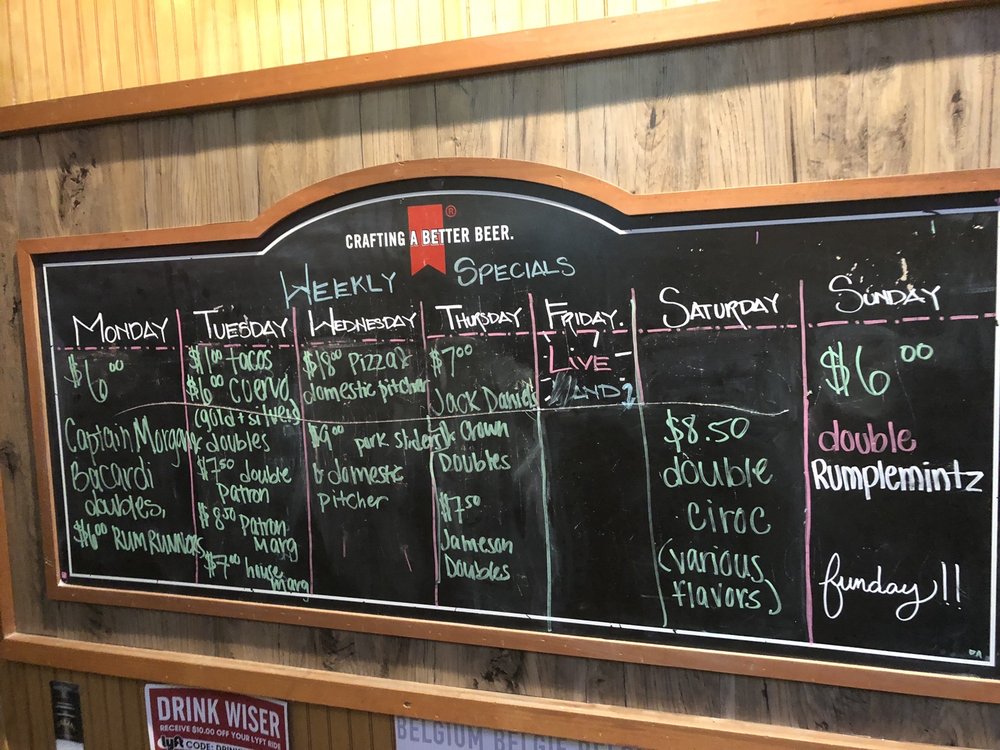 CRAFTING A BETTER BEER.
®
WEEKLY SPECIALS
MONDAY
$6.00
Captain Morgan &
Bacardi
doubles,
$6.00 RUM RUNNERS
TUESDAY
$1.00 tacos
$6.00 CUERVO
(gold + silver)
doubles
$7.50 double
Patron
$8.50 Patron
Marg
$7.00 house
marg
WEDNESDAY
$18.00 PIZZA &
domestic pitcher
$9.00 pork sliders
& domestic
pitcher
THURSDAY
$7.00
JACK DANIELS
& Crown
DOUBLES
$7.50
Jameson
Doubles
FRIDAY
LIVE
SATURDAY
$8.50
double
CIROC
(various
flavors)
SUNDAY
$6.00
double
Rumplemintz
funday!!
DRINK WISER
RECEIVE $10.00 OFF YOUR LYFT RIDE
lyft CODE:
BELGIUM BELGIE